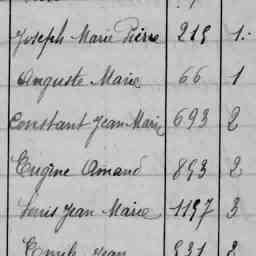 Joseph Marie Pierre 219 1
Auguste Marie 66 1
Constant Jean Marie 693 2
Eugène Amand 893 2
Louis Jean Marie 1197 3
Emile Jean 931 2